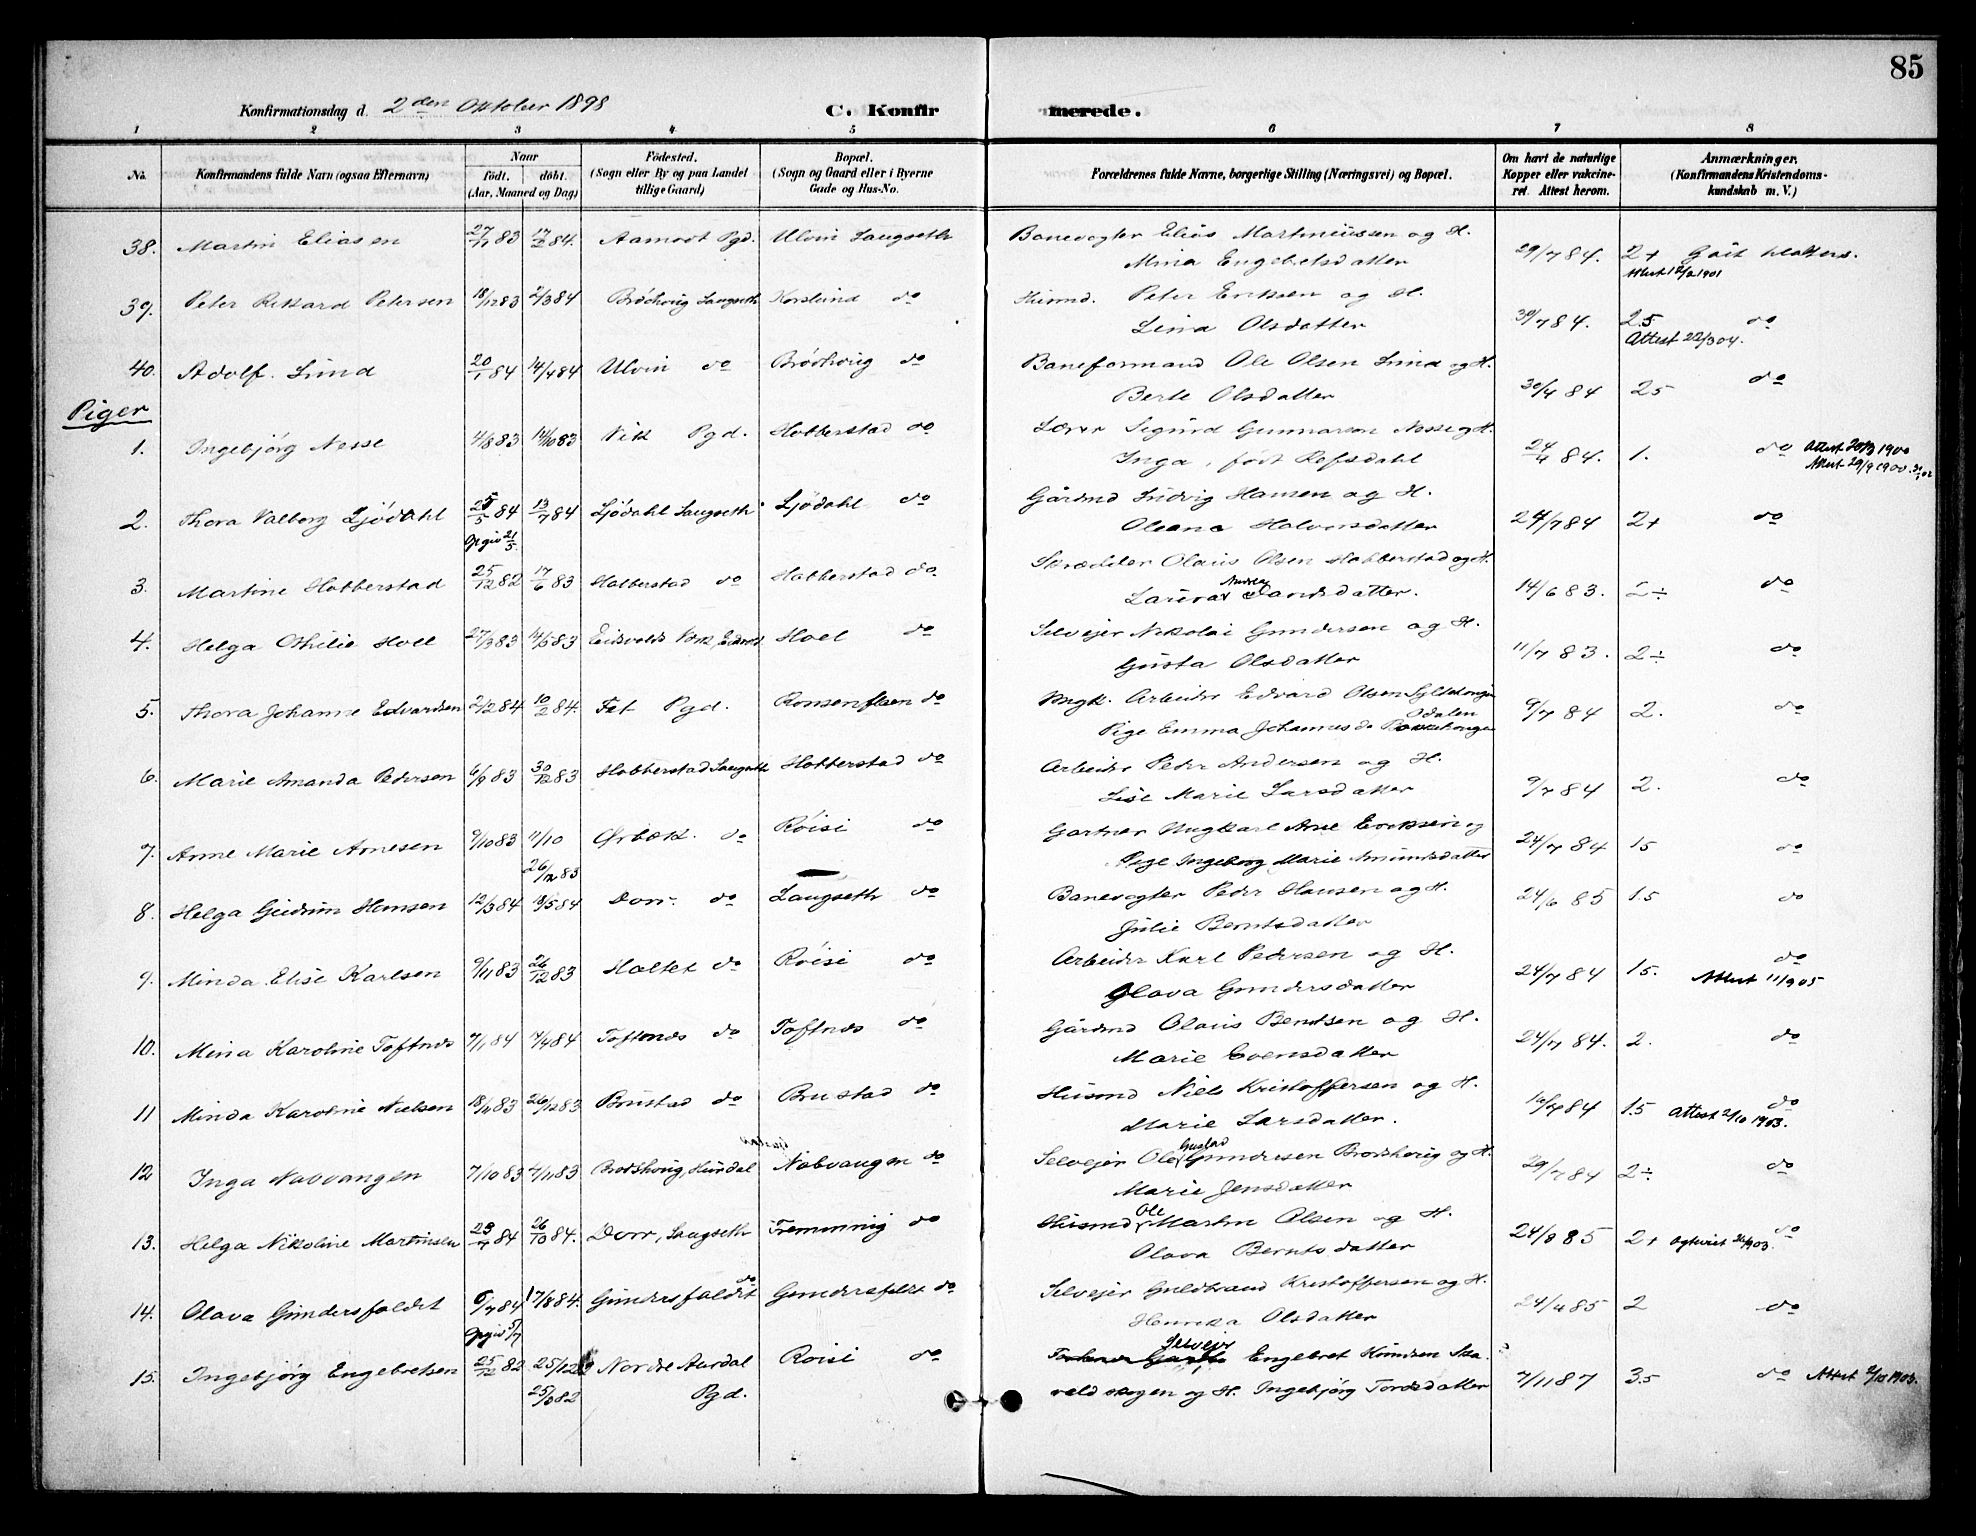 85
Konfirmationsdag d. 2den Oktober 1898 C. Konfirmerede.
1 2 3 4 5 6 7 8
No. Konfirmandens fulde Navn (ogsaa Efternavn) Naar født. døbt. (Aar, Maaned og Dag) Fødested. (Sogn eller By og paa Landet tillige Gaard) Bopæl. (Sogn og Gaard eller i Byerne Gade og Hus-No.) Forældrenes fulde Navne, borgerlige Stilling (Næringsvei) og Bopæl. Om havt de naturlige Kopper eller vakcineret. Attest herom. Anmærkninger. (Konfirmandens Kristendomskundskab m. V.)
38. Martin Eliasen 27/11 83 17/2 84. Aamodt Pgd. Ulvin Langseth Banevogter Elias Martiniussen og H.
Mina Engebretsdatter 29/7 84. 2+ Godt
Attest 1901
39. Peter Rikkard Petersen 18/12 83 2/3 84 Brøthovig Langseth Korslund do Husmd. Peter Eriksen og H.
Lina Olsdatter 30/7 84. 2.5 do
Attest 22/3 04.
40. Adolf Lund 20/1 84 14/4 84 Ulvin do Brøthovig do Baneformand Ole Olsen Lund og H.
Berte Olsdatter 30/4 84 25 do
Piger
1. Ingebjørg Nesse 4/8 83 14/10 83 Vik Pgd. Hobberstad do Lærer Sigurd Gunnarson Nesse og H.
Inga, født Refsdahl 24/4 84. 1. do Attest 1900
Attest 29/9 1900.
2. Thora Valborg Ljødahl 25/5 84 13/7 84 Ljødahl Langseth Ljødahl do Gårdmd Ludvig Hansen og H.
Opgiv 21/5. Oleana Halvorsdatter 24/7 84 2+ do
3. Martine Hobberstad 25/12 82 17/6 83 Hobberstad do Hobberstad do. Skrædder Olaus Olsen Hobberstad og H.
Laura Andrea Larsdatter. 14/6 83. 2÷ do
4. Helga Othilie Hoel 27/3 83 14/5 83 Eidsvolds Hoel do Selvejer Nikolai Gundersen og H.
Gusta Olsdatter 11/7 83. 2÷ do
5. Thora Johanne Edvardsen 2/2 84 10/2 84. Fet Pgd. Ronsenflsen do Ungk. Arbeider Edvard Olsen
Pige Emma Johannesd. Odalen 9/7 84 2. do
6. Marie Amanda Pedersen 6/9 83 30/12 83 Hobberstad Langseth Hobberstad do Arbeider Peder Andersen og H.
Lise Marie Larsdatter 9/7 84 2. do
7. Anne Marie Arnesen 9/10 83 11/10 Ørbæk. do Røisi do Gartner Ungkarl Arne Eriksen og
26/12 83 Pige Ingeborg Marie Amundsdatter 24/7 84 15 do
8. Helga Gudrun Hansen 12/3 84 18/5 84 Dorr. do Langseth do Banevogter Peder Hansen og H.
Julie Berntsdatter 24/6 85 1.5 do
9. Minda Elise Karlsen 9/11 83 26/12 83 Holtet do Røisi do Arbeider Karl Pedersen og H.
Olava Gundersdatter 24/7 84 15. do
Attest 11/9 05
10. Mina Karoline Toftnes 7/1 84 14/4 84 Toftnes do Toftnes do Gårdmd Olaus Bentsen og H.
Marie Evensdatter 24/7 84. 2. do
11 Minda Karoline Nielsen 18/11 83 26/12 83 Brustad do Brustad do Husmd Niels Kristoffersen og H.
Marie Larsdatter. 16/7 84 1.5 do
Attest 2/10 1903.
12 Inga Nabvangen 7/10 83 4/11 83 Brøthovig, Hurdal Nabvangen do Selvejer Ole Gustav Gundersen Brøthovig og H.
Marie Jensdatter 29/7 84 2÷ do
13. Helga Nikoline Martinsen 23/7 84 26/10 84. Dorr, Langseth Fremming do Husmd Ole Martin Olsen og H.
Olava Berntsdatter 24/8 85 2+ do
14. Olava Gundersfaldet 6/7 84 17/8 84. Gundersfaldet do Gundersfaldt do Selvejer Guldbrand Kristoffersen og H.
Opgiv 5/7 Henrika Olsdatter 24/4 85 2 do
15. Ingebjørg Engebretsen 25/12 82 25/12 Nordre Aurdal Pgd. Roisi do Selvejer Engebret Knudsen
og H. Ingebjørg Tordsdatter 7/11 87 3.5 do Attest 1903.